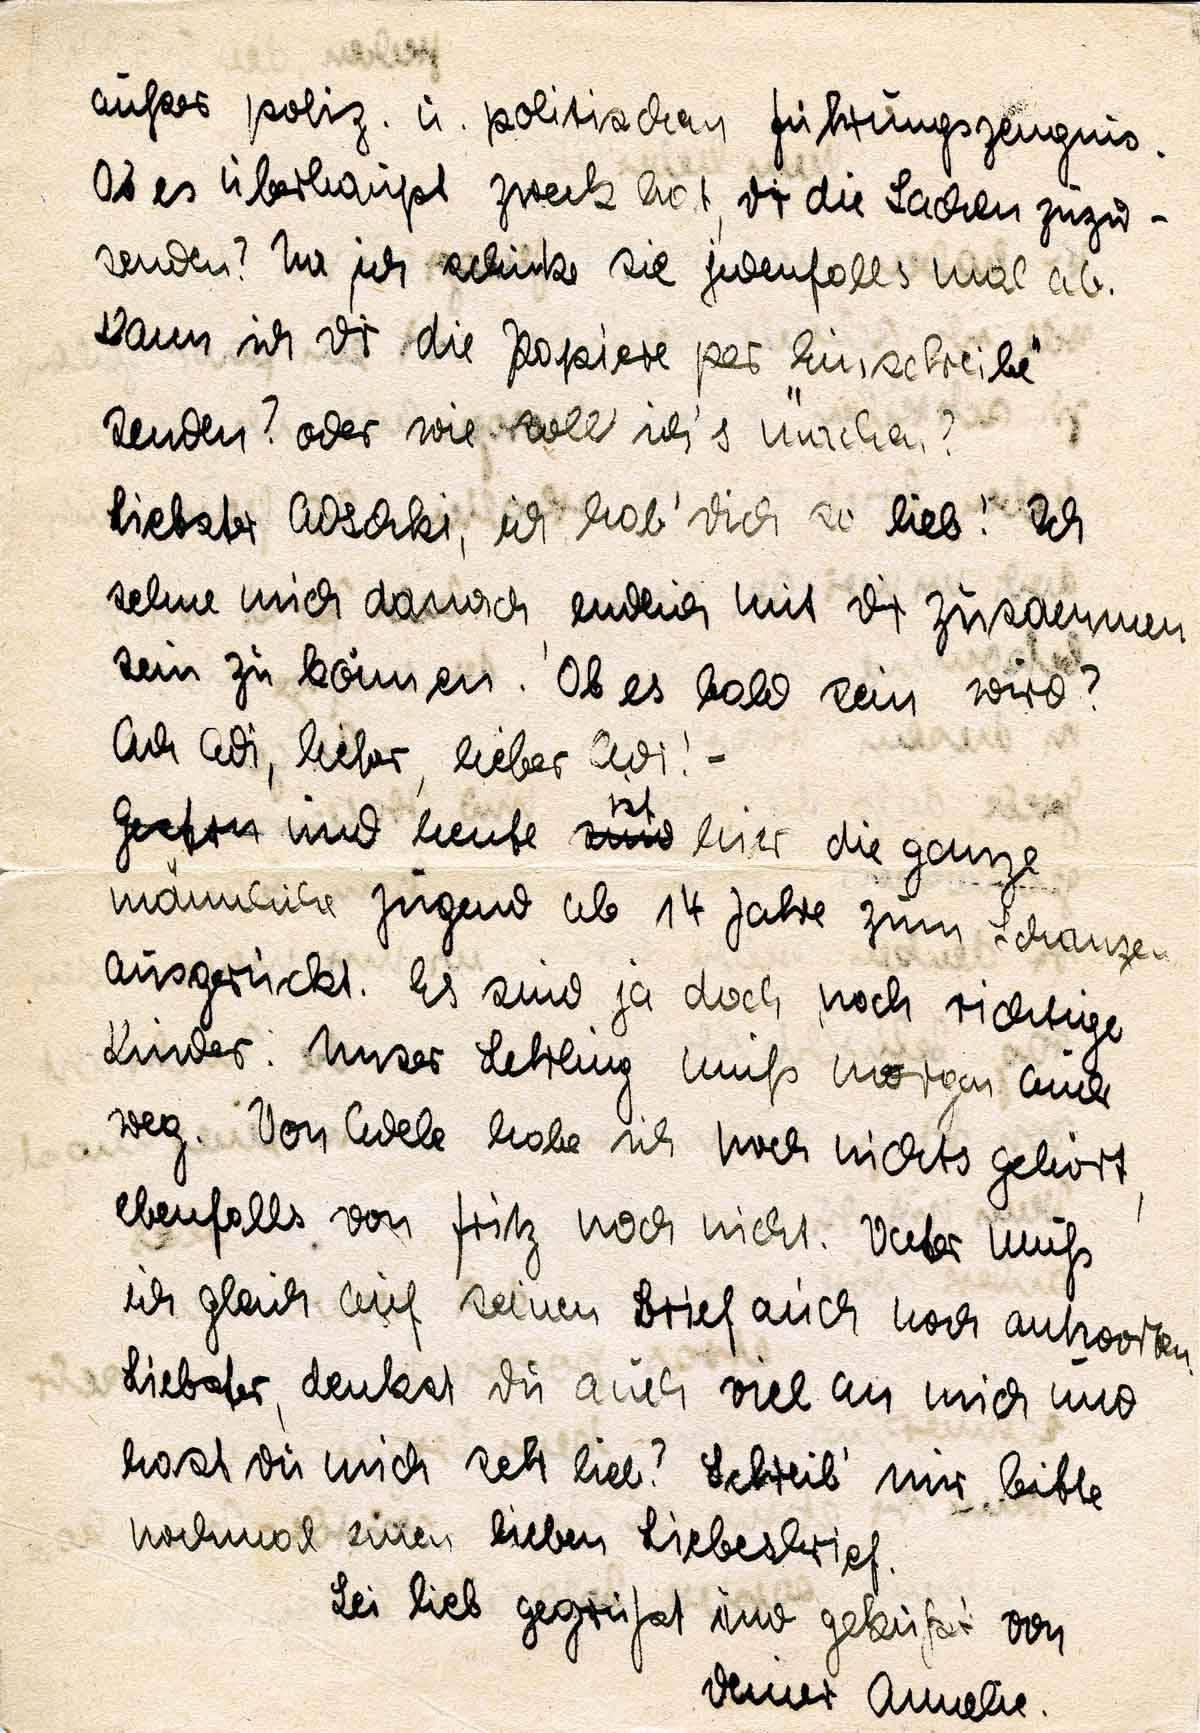 außer poliz. u. politischen Führungszeugnis.
Ob es überhaupt zweck hat, dir die Sachen zuzu-
senden? Na ich schicke sie jedenfalls mal ab.
Kann ich dir die Papiere per "Einschreibe"
senden? oder wie soll ich's machen?
Liebster Adschki, ich hab' dich so lieb! Ich
sehne mich danach, endlich mit dir zusammen
sein zu können. Ob es bald sein wird?
Ach Adi, lieber, lieber Adi! -
Gestern und heute sind ist hier die ganze
männliche Jugend ab 14 Jahre zum Schanzen
ausgerückt. Es sind ja doch noch richtige
Kinder. Unser Lehrling muß morgen auch
weg. Von Adele habe ich noch nichts gehört,
ebenfalls von Fritz noch nicht. Vater muß
ich gleich auf seinen Brief auch noch antworten.
Liebster, denkst du auch viel an mich und
hast du mich sehr lieb? Schreib' mir bitte
nochmal einen lieben Liebesbrief.
Sei lieb gegrüßt und geküßt von
deiner Annelie.